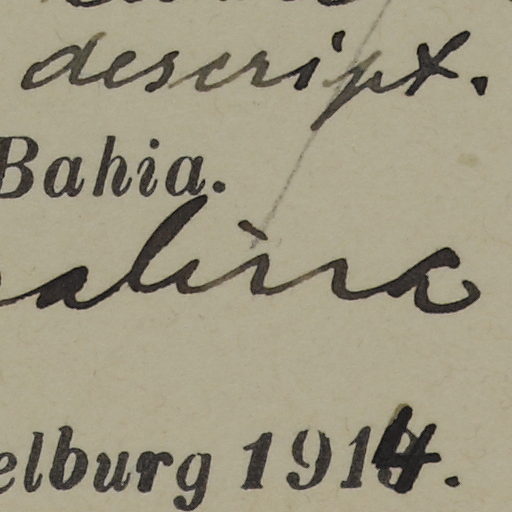 descript.
Bahia.
alina
elburg 1914.